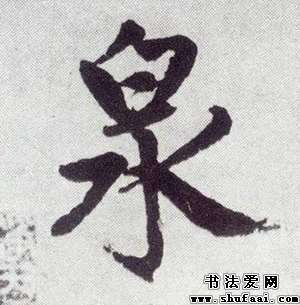 泉
书法爱网
www.shufaai.com